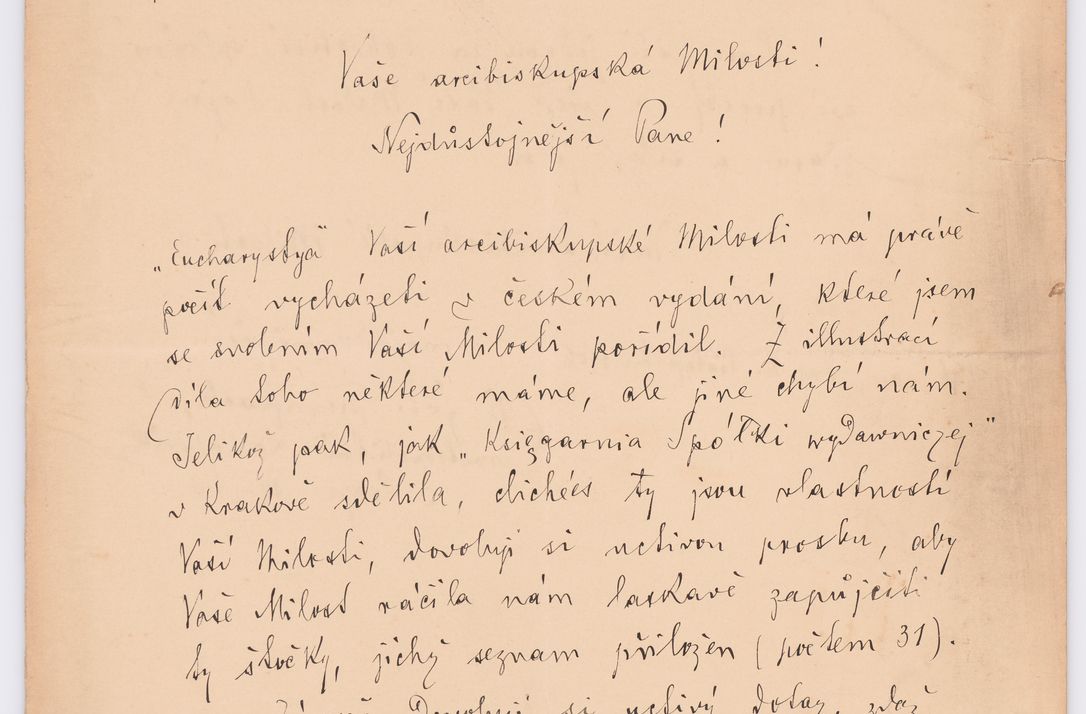 Vaše arcibiskupská Milosti!
Nejdůstojnější Pane!
„Eucharystya" Vaší arcibiskupské Milosti má právě
počít vycházeti v českém vydání, které jsem
se svolením Vaší Milosti pořídil. Z illustrací
díla toho některé máme, ale jiné chybí nám.
Jelikož pak, jak „Księgarnia Spółki wydawniczej"
v Krakově sdělila, clichées ty jsou vlastností
Vaší Milosti, dovoluji si uctivou prosbu, aby
Vaše Milost ráčila nám laskavě zapůjčiti
ty štočky, jichž seznam přiložen (počtem 31).
Dovoluji si uctivý dotaz, zdaž